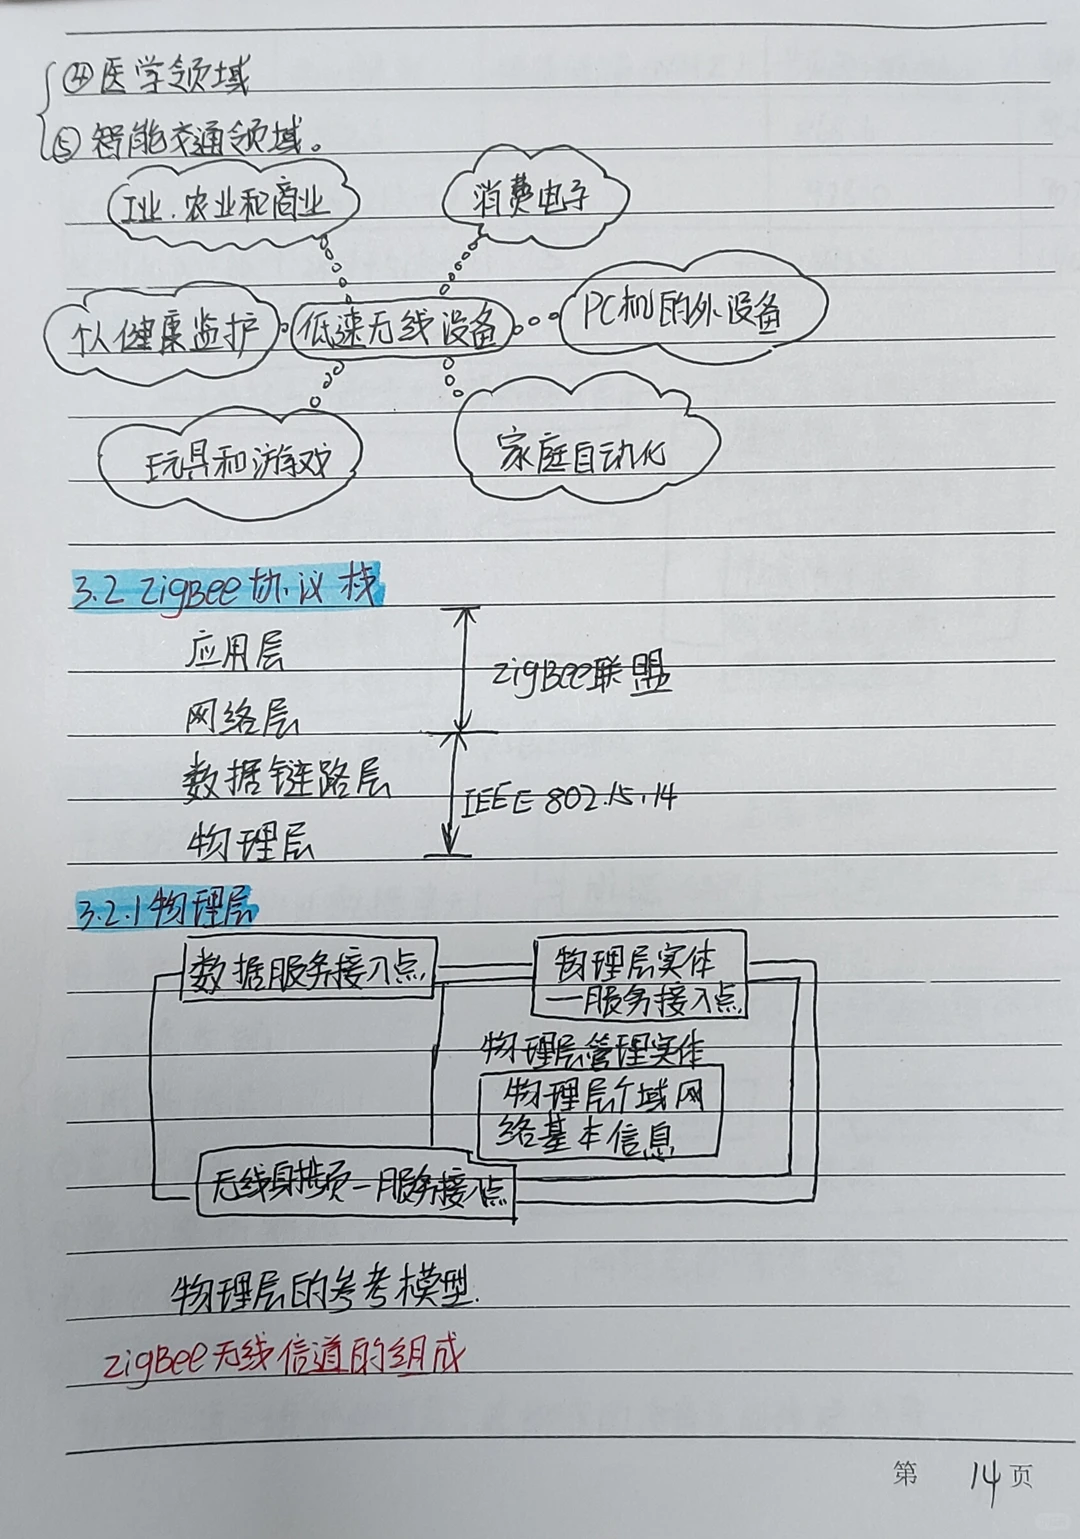 ④医学领域
⑤智能交通领域。
工业.农业和商业
消费电子
个人健康监护
低速无线设备
PC机的外设备
玩具和游戏
家庭自动化
3.2 ZigBee协议栈
应用层
ZigBee联盟
网络层
数据链路层
IEEE 802.15.14
物理层
3.2.1物理层
数据服务接入点
物理层实体
一服务接入点
物理层管理实体
物理层个域网
络基本信息
无线射频一服务接入点
物理层的参考模型.
ZigBee无线信道的组成
第 14 页